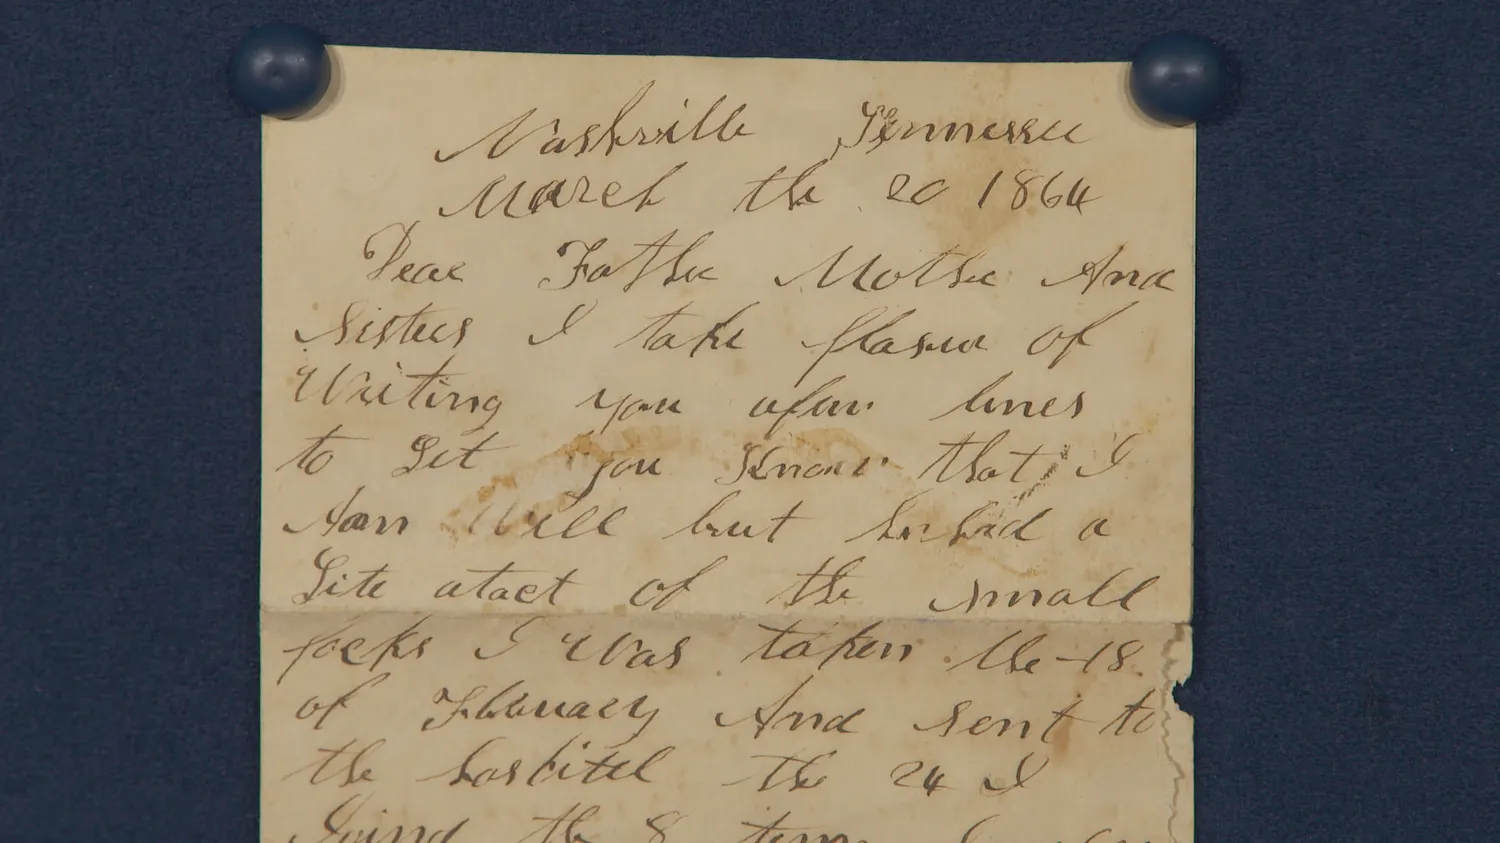 Nashville Tennessee
March the 20 1864
Dear Father Mother And
Sisters I take plasur of
Writing you afaw lines
to Let you Know that I
Aam Well but hn had a
Lite atact of the small
pocks I Was taken the 18
of Februacy And sent to
the hosbitel the 24 I
Joind the 8